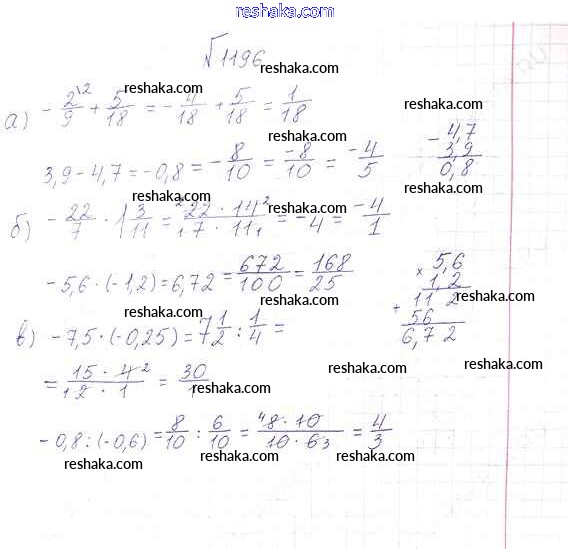 reshaka.com
√1196
reshaka.com
reshaka.com
а) - 2\2/9 + 5/18 = - 4/18 + 5/18 = 1/18
reshaka.com
reshaka.com
3,9 - 4,7 = -0,8 = - 8/10 = -8/10 = -4/5
- 4,7
3,9
0,8
reshaka.com
reshaka.com
б) - 22/7 · 1 3/11 = 22 · 14/7 · 11 = -4 = -4/1
reshaka.com
-5,6 · (-1,2) = 6,72 = 672/100 = 168/25
× 5,6
1,2
+ 112
56
6,72
reshaka.com
reshaka.com
в) -7,5 · (-0,25) = 7 1/2 : 1/4 =
reshaka.com
reshaka.com
= 15 · 4 2/1 2 · 1 = 30/1
reshaka.com
-0,8 : (-0,6) = 8/10 : 6/10 = 4 8 · 10/10 · 6 3 = 4/3
reshaka.com
reshaka.com
reshaka.com